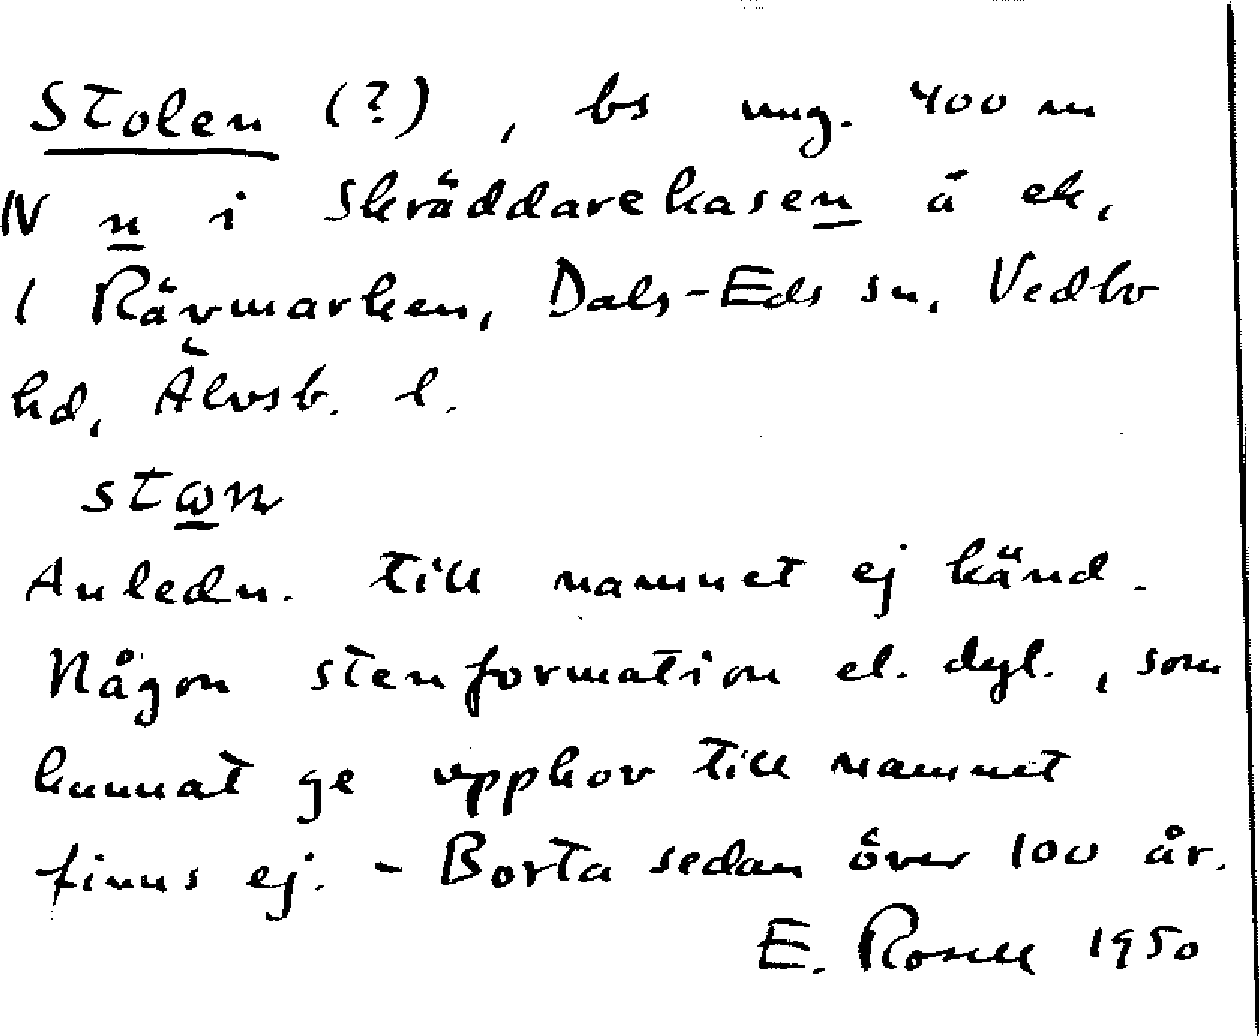 Stolen (?), bs ung. 400 m
N n i Skräddarekasen å ek,
1 Rävmarken, Dals-Eds sn, Vedbo
hd, Älvsb. l.
stɷn
Anledn. till namnet ej känd.
Någon stenformation el. dyl., som
kunnat ge upphov till namnet
finns ej. - Borta sedan över 100 år.
E. Rosell 1950